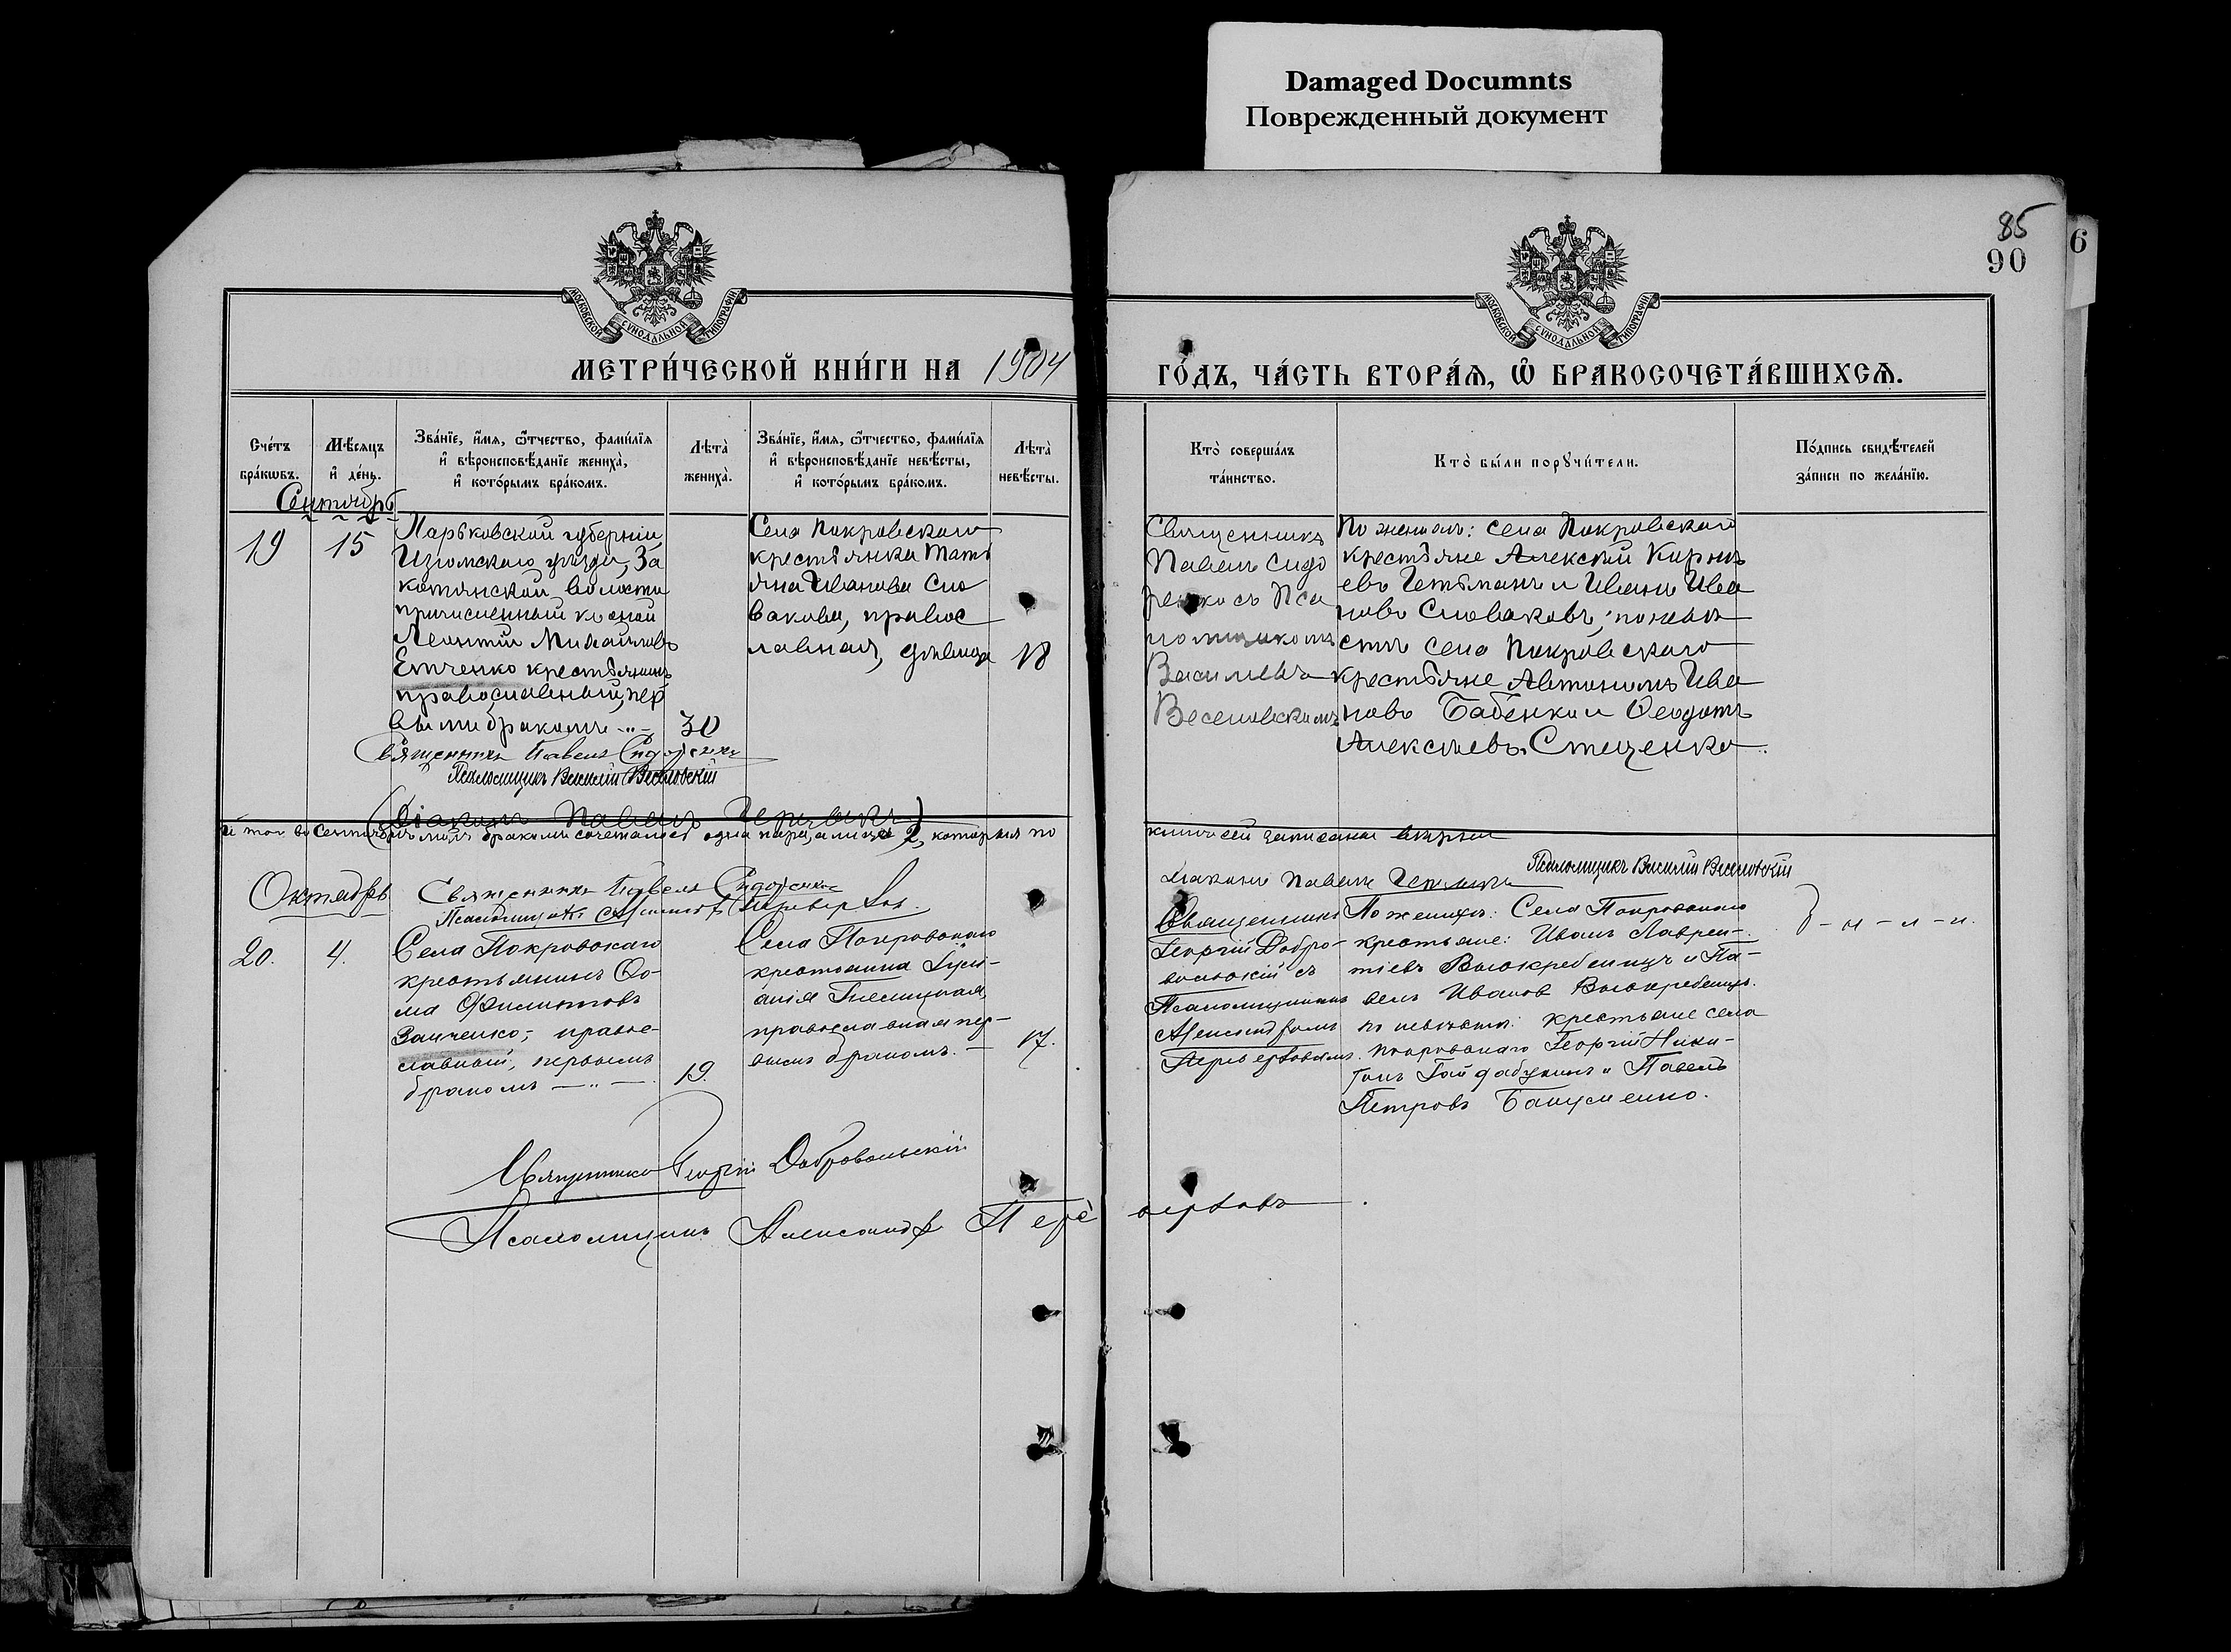 Damaged Documnts
Поврежденный документ
85
90
6
МОСКОВСКОЙ СѴНОДАЛЬНОЙ ТИПОГРАФІИ
МОСКОВСКОЙ СѴНОДАЛЬНОЙ ТИПОГРАФІИ
МЕТРИ́ЧЕСКОЙ КНИ́ГИ НА 1904
ГО́ДЪ, ЧА́СТЬ ВТОРА́Я, Ѡ҆ БРАКОСОЧЕТА́ВШИХСѦ.
Сче́тъ
бра́кѡвъ.
Мѣ́сяцъ
и҆ де́нь.
Зва́нїе, и҆́мя, ѻ҆́тчество, фами́лїя
и҆ вѣроисповѣ́данїе жениха̀,
и҆ кото́рымъ бра́комъ.
Лѣта̀
жениха̀.
Зва́нїе, и҆́мя, ѻ҆́тчество, фами́лїя
и҆ вѣроисповѣ́данїе невѣ́сты,
и҆ кото́рымъ бра́комъ.
Лѣта̀
невѣ́сты.
Кто̀ соверша́лъ
та́инство.
Кто̀ бы́ли порꙋчи́тели.
По́дпись свидѣ́телей
за́писи по жела́нїю.
Сентябрь
19
15
Харьковской губерніи
Изюмскаго уѣзда, За
котянской волости
причисленный къ оной
Леонтій Михайловъ
Етченко крестьянинъ
православный, пер
вымъ бракомъ -"-
30
Села Покровскаго
крестьянка Тать
яна Иванова Сло
вакова, правос
лавная, дѣвица
18
Священникъ
Павелъ Сидо
ренко съ Пса
ломщикомъ
Василіемъ
Веселовскимъ
По женихѣ: села Покровскаго
крестьяне Алексѣй Корнѣ
евъ Гетьманъ и Иванъ Ива
новъ Словаковъ; по невѣ
стѣ села Покровскаго
крестьяне Автономъ Ива
новъ Бабенко и Ѳеодотъ
Алексѣевъ Стеценко.
Священникъ Павелъ Сидоренко
Псаломщикъ Василій Веселовскій
(Діаконъ Павелъ)
Итого въ Сентябрѣ мѣс. бракомъ сочеталась одна пара, а лицъ 2, которыя по
книгѣ сей записаны вѣрно
Священникъ Павелъ Сидоренко
Діаконъ Павелъ
Псаломщикъ Василій Веселовскій
Октябрь
20.
4.
Села Покровскаго
крестьянинъ Ѳо-
ма Филиповъ
Заиченко; право-
славный; первымъ
бракомъ — " —.
19.
Села Покровскаго
крестьянка
православная пер-
вымъ бракомъ. —
17.
Священникъ
Георгій Добро-
вольскій съ
Псаломщикомъ
Александромъ
По женихѣ: Села Покровскаго
крестьяне: Иванъ Лаврен-
тіевъ Высокребенецъ и Па-
велъ Ивановъ Высокребенецъ.
по невѣстѣ: крестьяне села
Покровскаго Георгій Ники-
Гайдабукинъ и Павелъ
Петровъ
Священникъ Георгій Добровольскій
Псаломщикъ Александръ